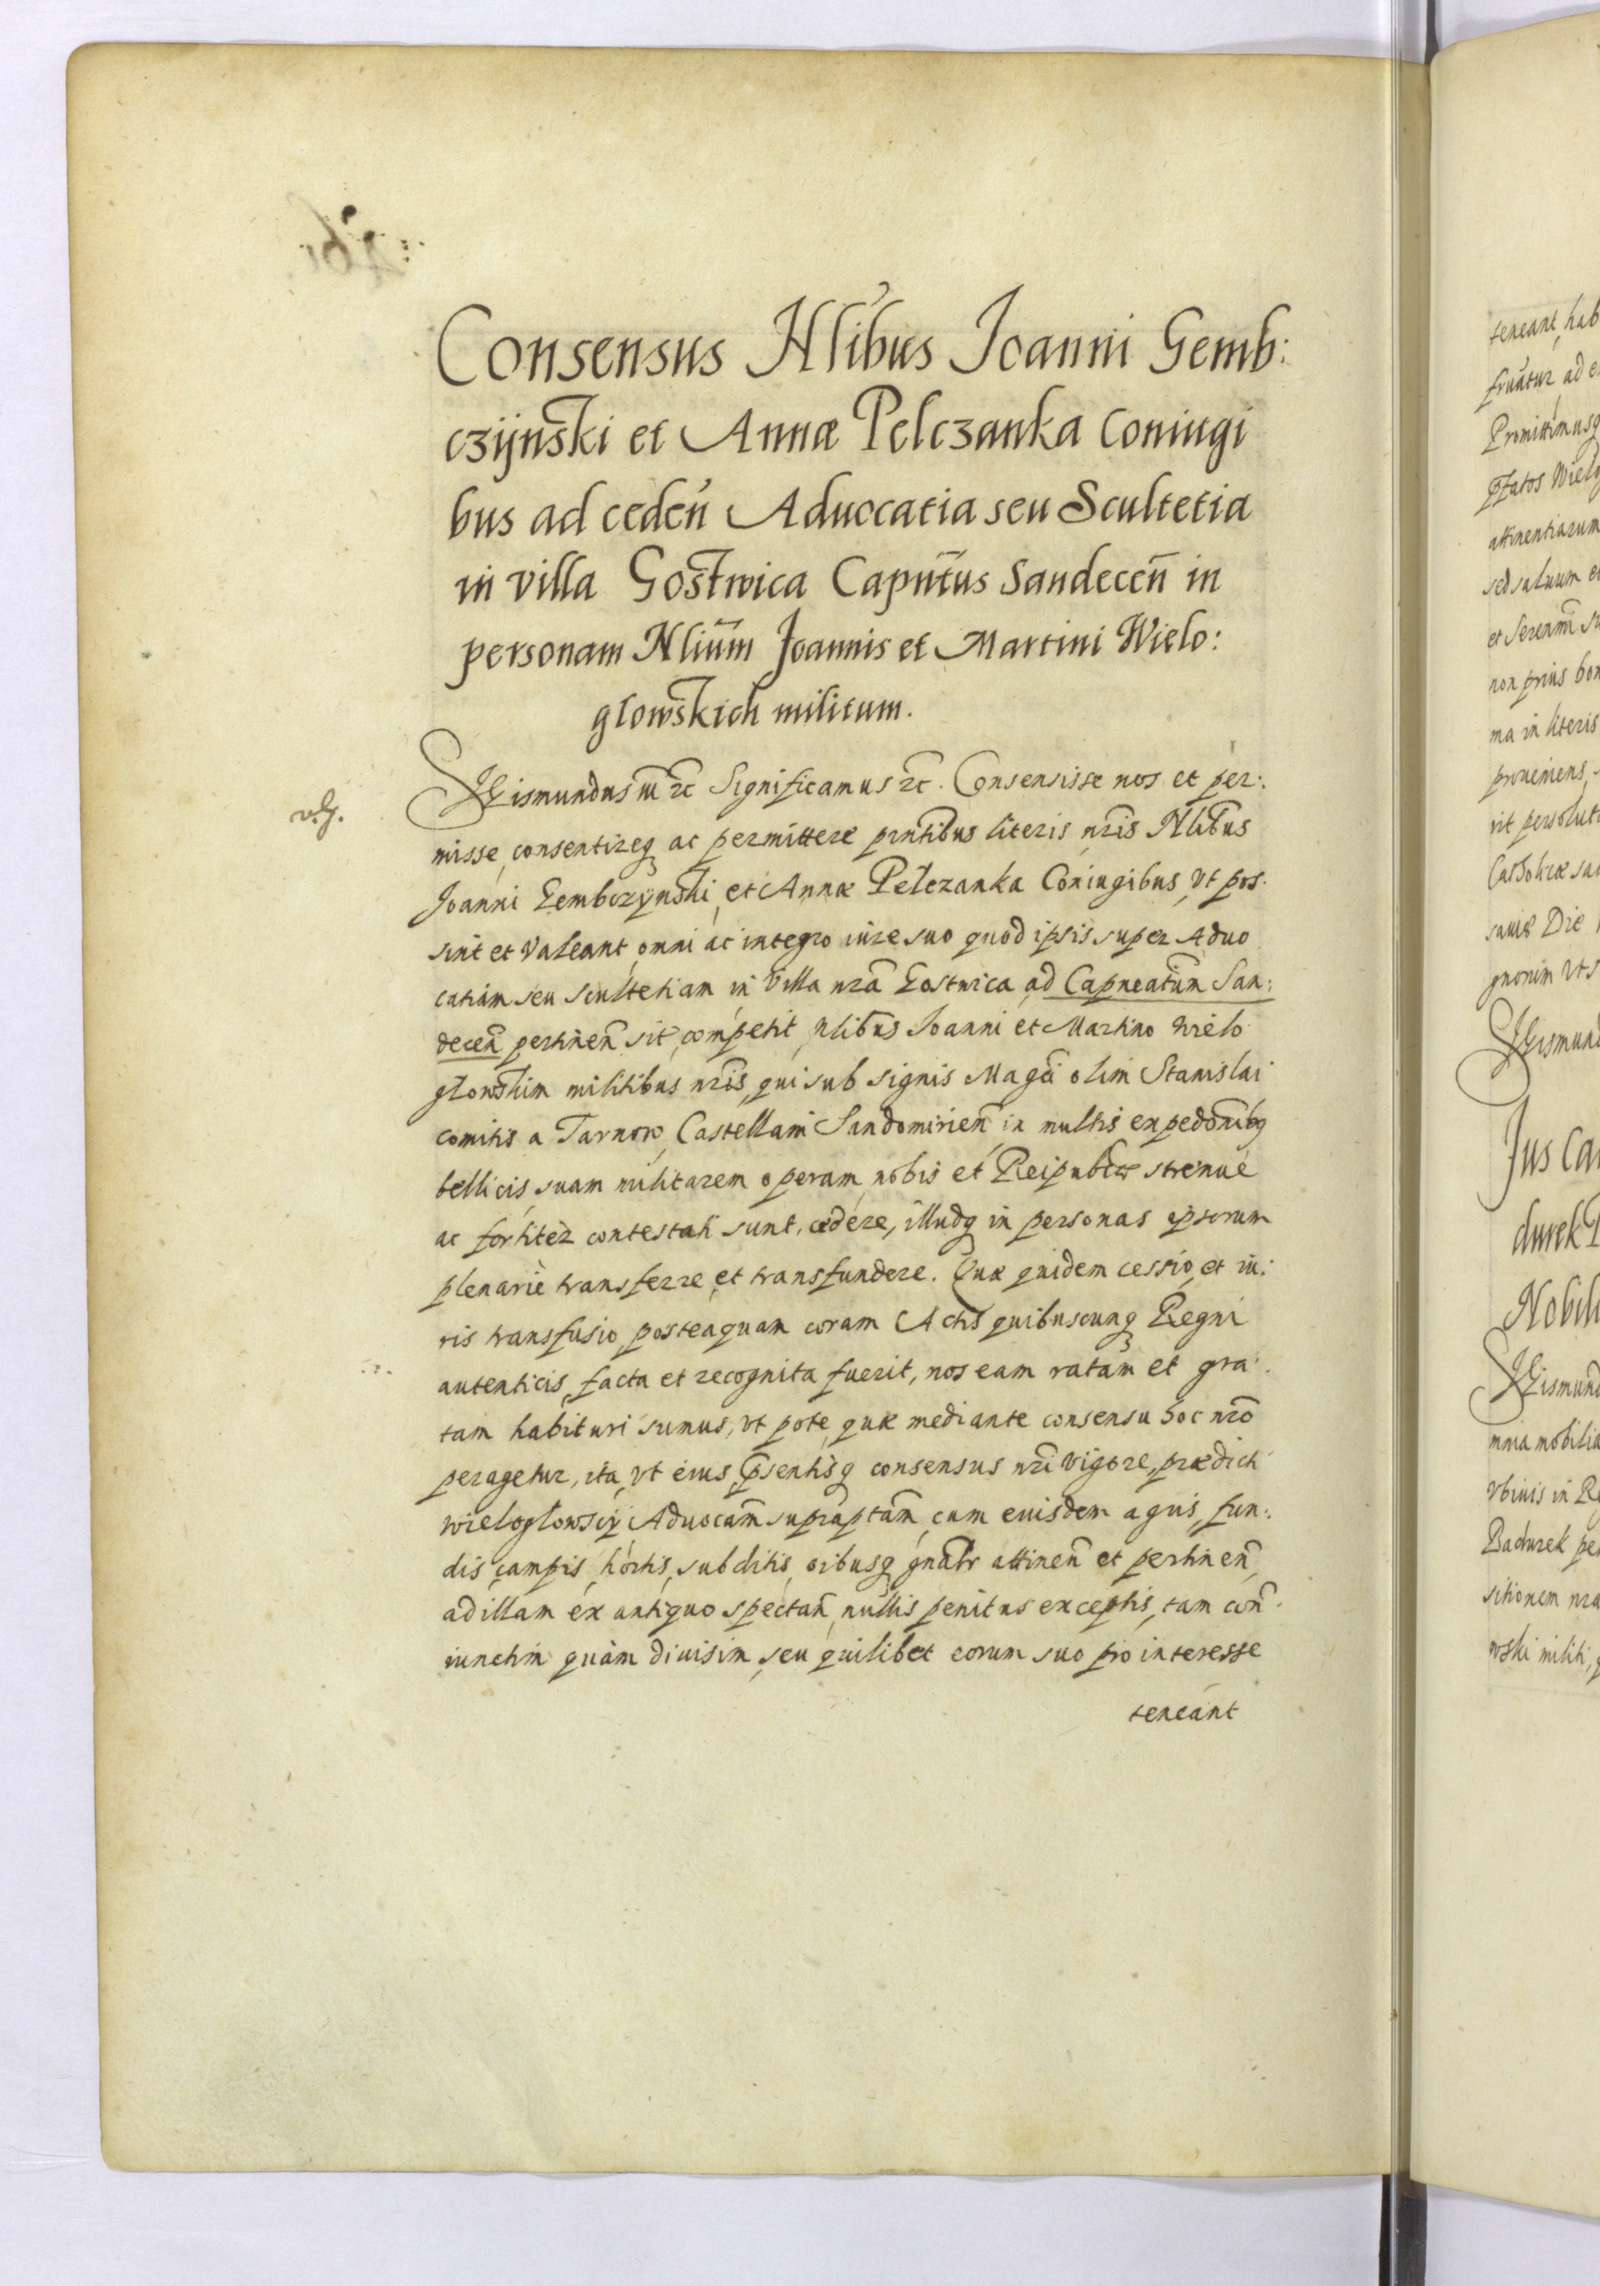 Consensus Nlibus Joanni Gemb:
czÿnski et Annæ Pelczanka Coniugi
bus ad ceden̄ Aduocatia seu Scultetia
in villa Gostwica Capn̄tus Sandecen̄ in
personam Nliūm Joannis et Martini Wielo:
glowskich militum.
Sigismundus III etc Significamus etc. Consensisse nos et per:
v.g.
misse, consentireq ac permittere pn̄tibus literis nr̄is Nlibus
Joanni Gembczÿnski, et Annæ Pelczanka Coniugibus, vt pos.
sint et valeant, omni ac integro iure suo quod ipsis super Aduo
catiam seu scultetiam in Villa nr̄a Gostwica ad Capneatūm San:
decen̄ pertinen̄ sit, competit, nlibus Joanni et Martino Wielo
glowskim militibus nr̄is, qui sub signis Mag̃ci olim Stanislai
comitis a Tarnow, Castellani Sandomirien̄ in multis expedōnibq
bellicis, suam militarem operam, nobis et Reipublicæ strenuè
ac fortitèr contestati sunt, cædere, illudq in personas ipsorum
plenariè transferre, et transfundere. Quæ quidem cessio, et iu:
ris transfusio, posteaquam coram Actis quibuscunq Regni
autenticis, facta et recognita fuerit, nos eam ratam et gra.
tam habituri sumus, vt pote, quæ mediante consensu hoc nr̄o
peragetur, ita, vt eius, p̄sentisq consensus nr̄i vigore, prædicti
wieloglowscÿ Aduocam̄ supraptam̄, cum euisdem agris, fun:
dis, campis, hortis, subditis, oibusq gn̄alr attinen̄ et pertinen̄,
ad illam ex antiquo spectan̄, nullis penitus exceptis, tam con̄.
iunctim quàm diuisim, seu quilibet eorum suo pro interesse
teneant
teneant, hab
fruātur, ad e
Promittimusq
p̄fatos Wielo
attinentiarum
sed saluum e
non prius bon
ma in literis
proueniens
rit persolut
Die
Sigismund
Jus Ca
durek
Nobili
Sigismund
mnia mobilia
Vbiuis in Re
Badurek pe
sitionem nr̄a
wski militi,